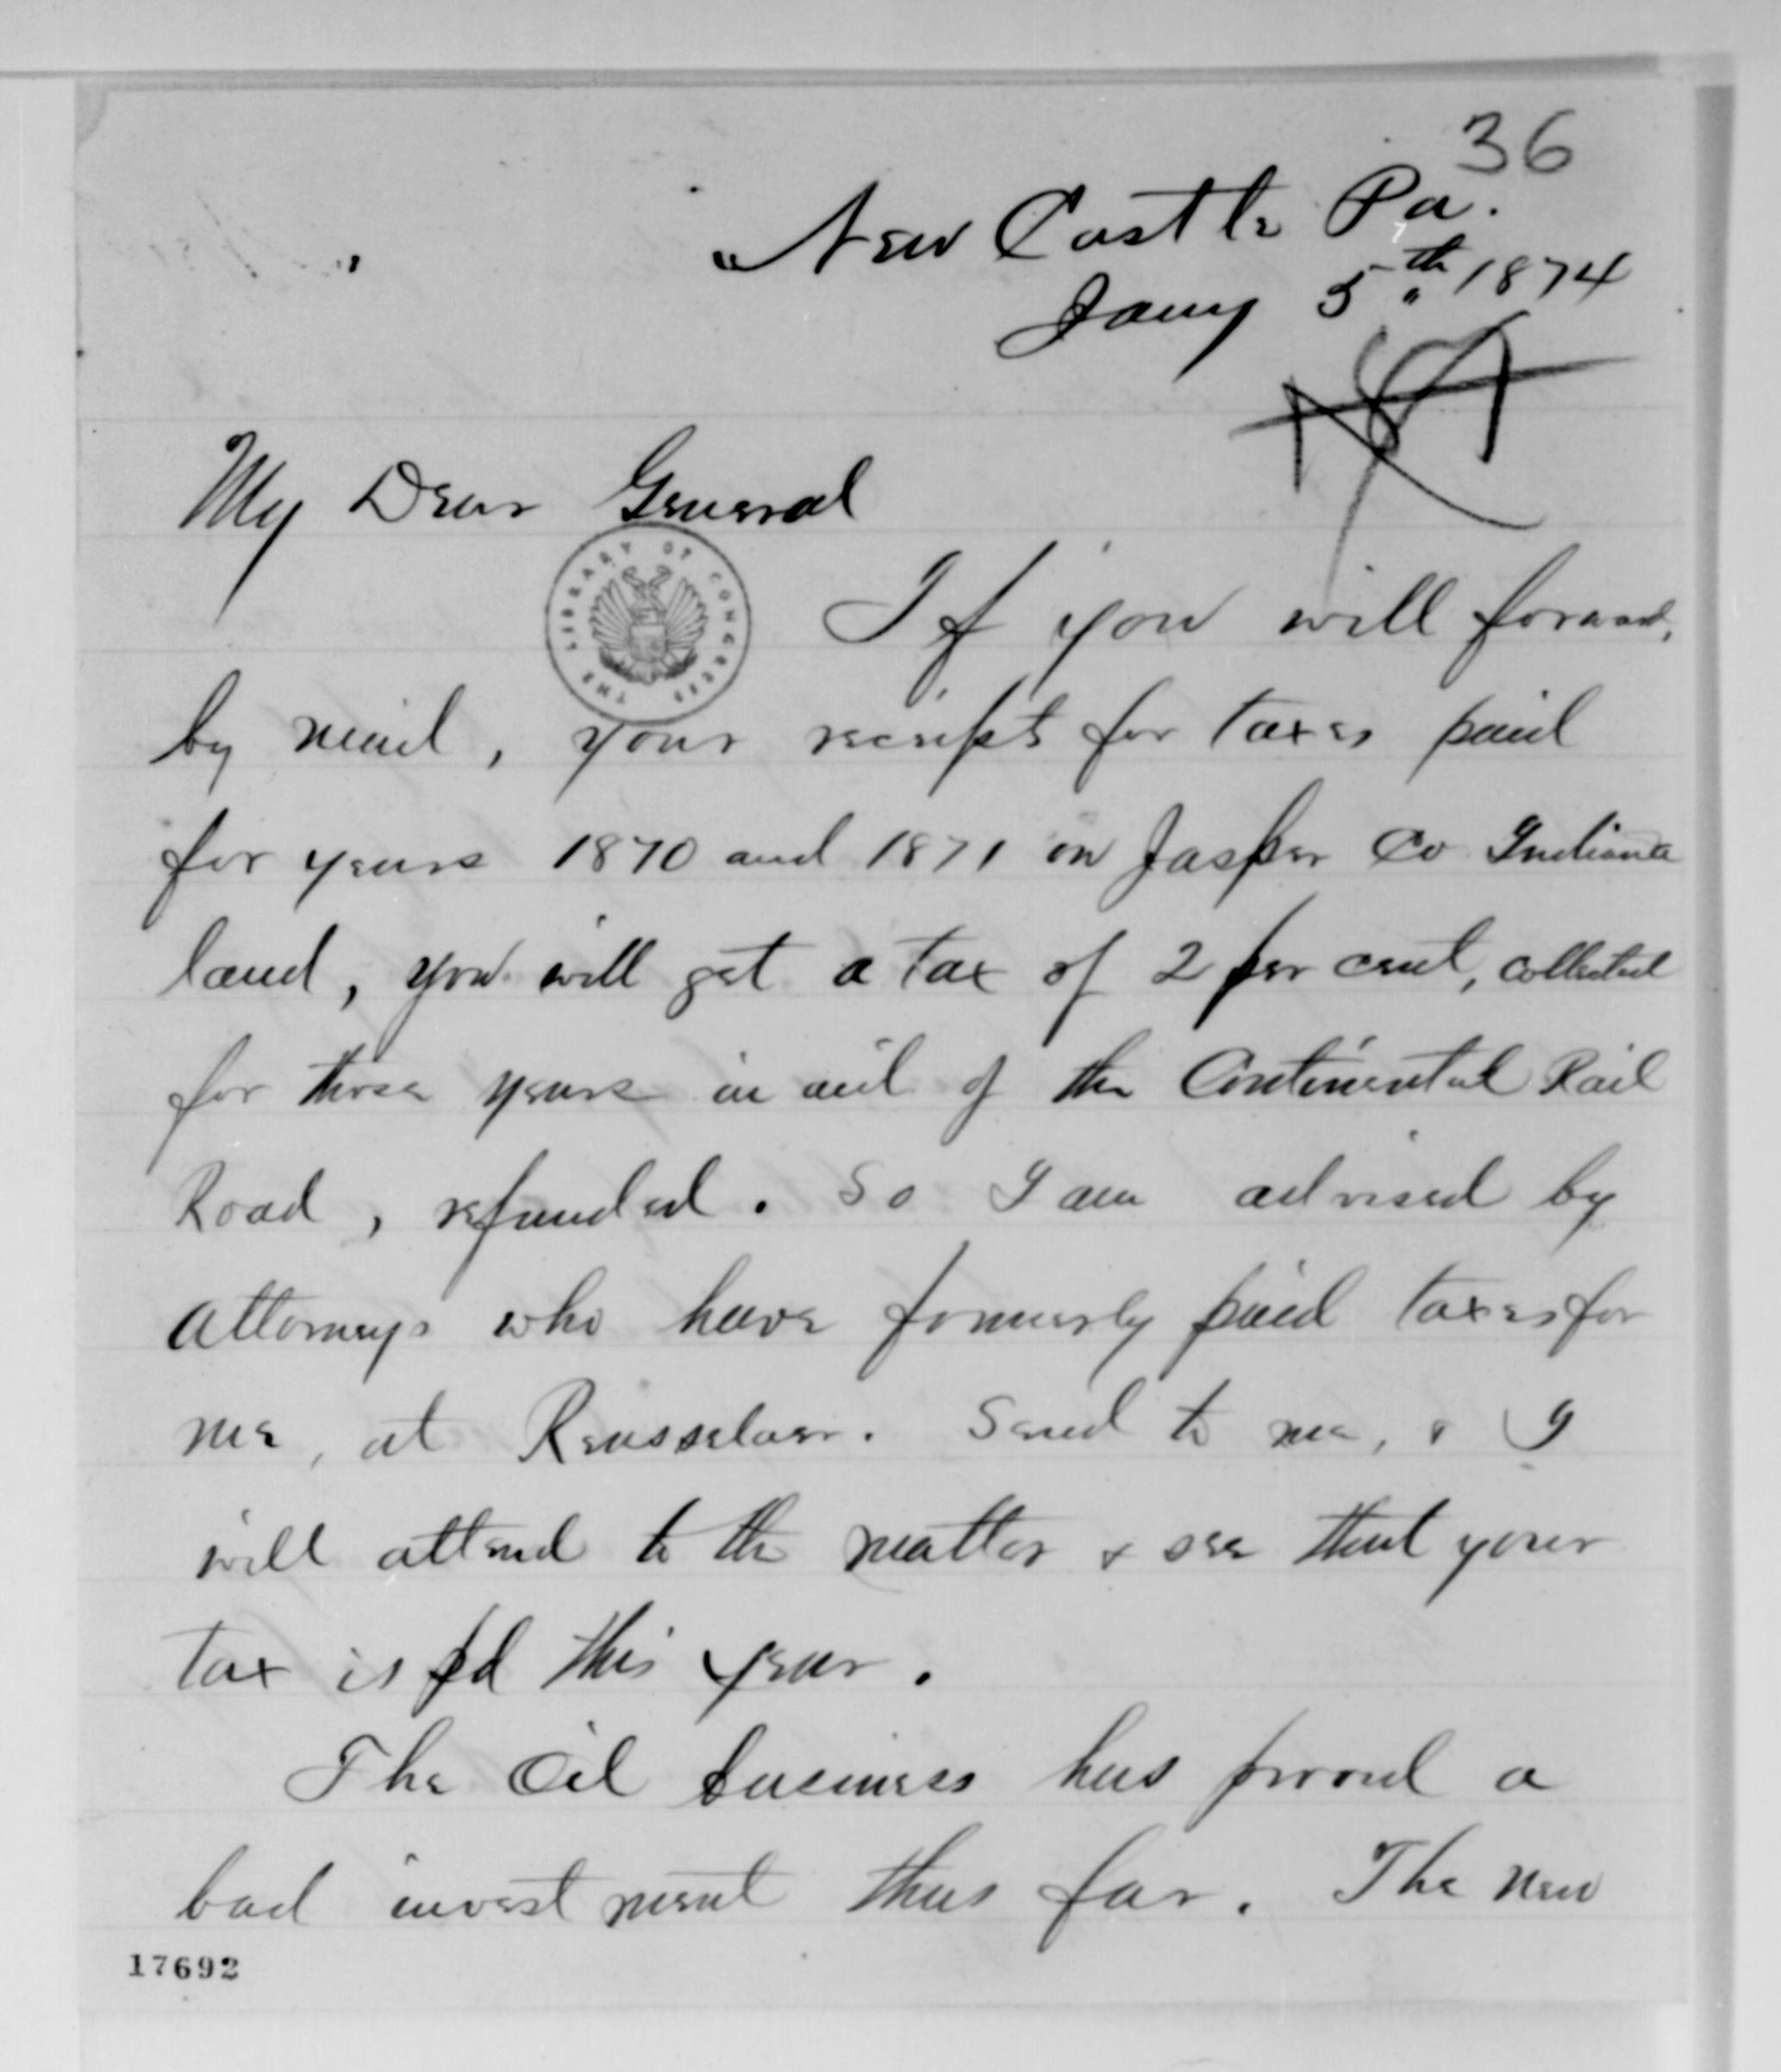 36
New Castle Pa.
Jany 5th 1874
My Dear General
THE LIBRARY OF CONGRESS
If you will forward,
by mail, your receipts for taxes paid
for years 1870 and 1871 on Jasper Co Indiana
land, you will get a tax of 2 per cent, collected
for those years in aid of the Continental Rail
Road, refunded. So I am advised by
Attorneys who have formerly paid taxes for
me, at Rensselaer. Send to me, & I
will attend to the matter & see that your
tax is pd this year.
The Oil business has proved a
bad investment thus far. The new
17692